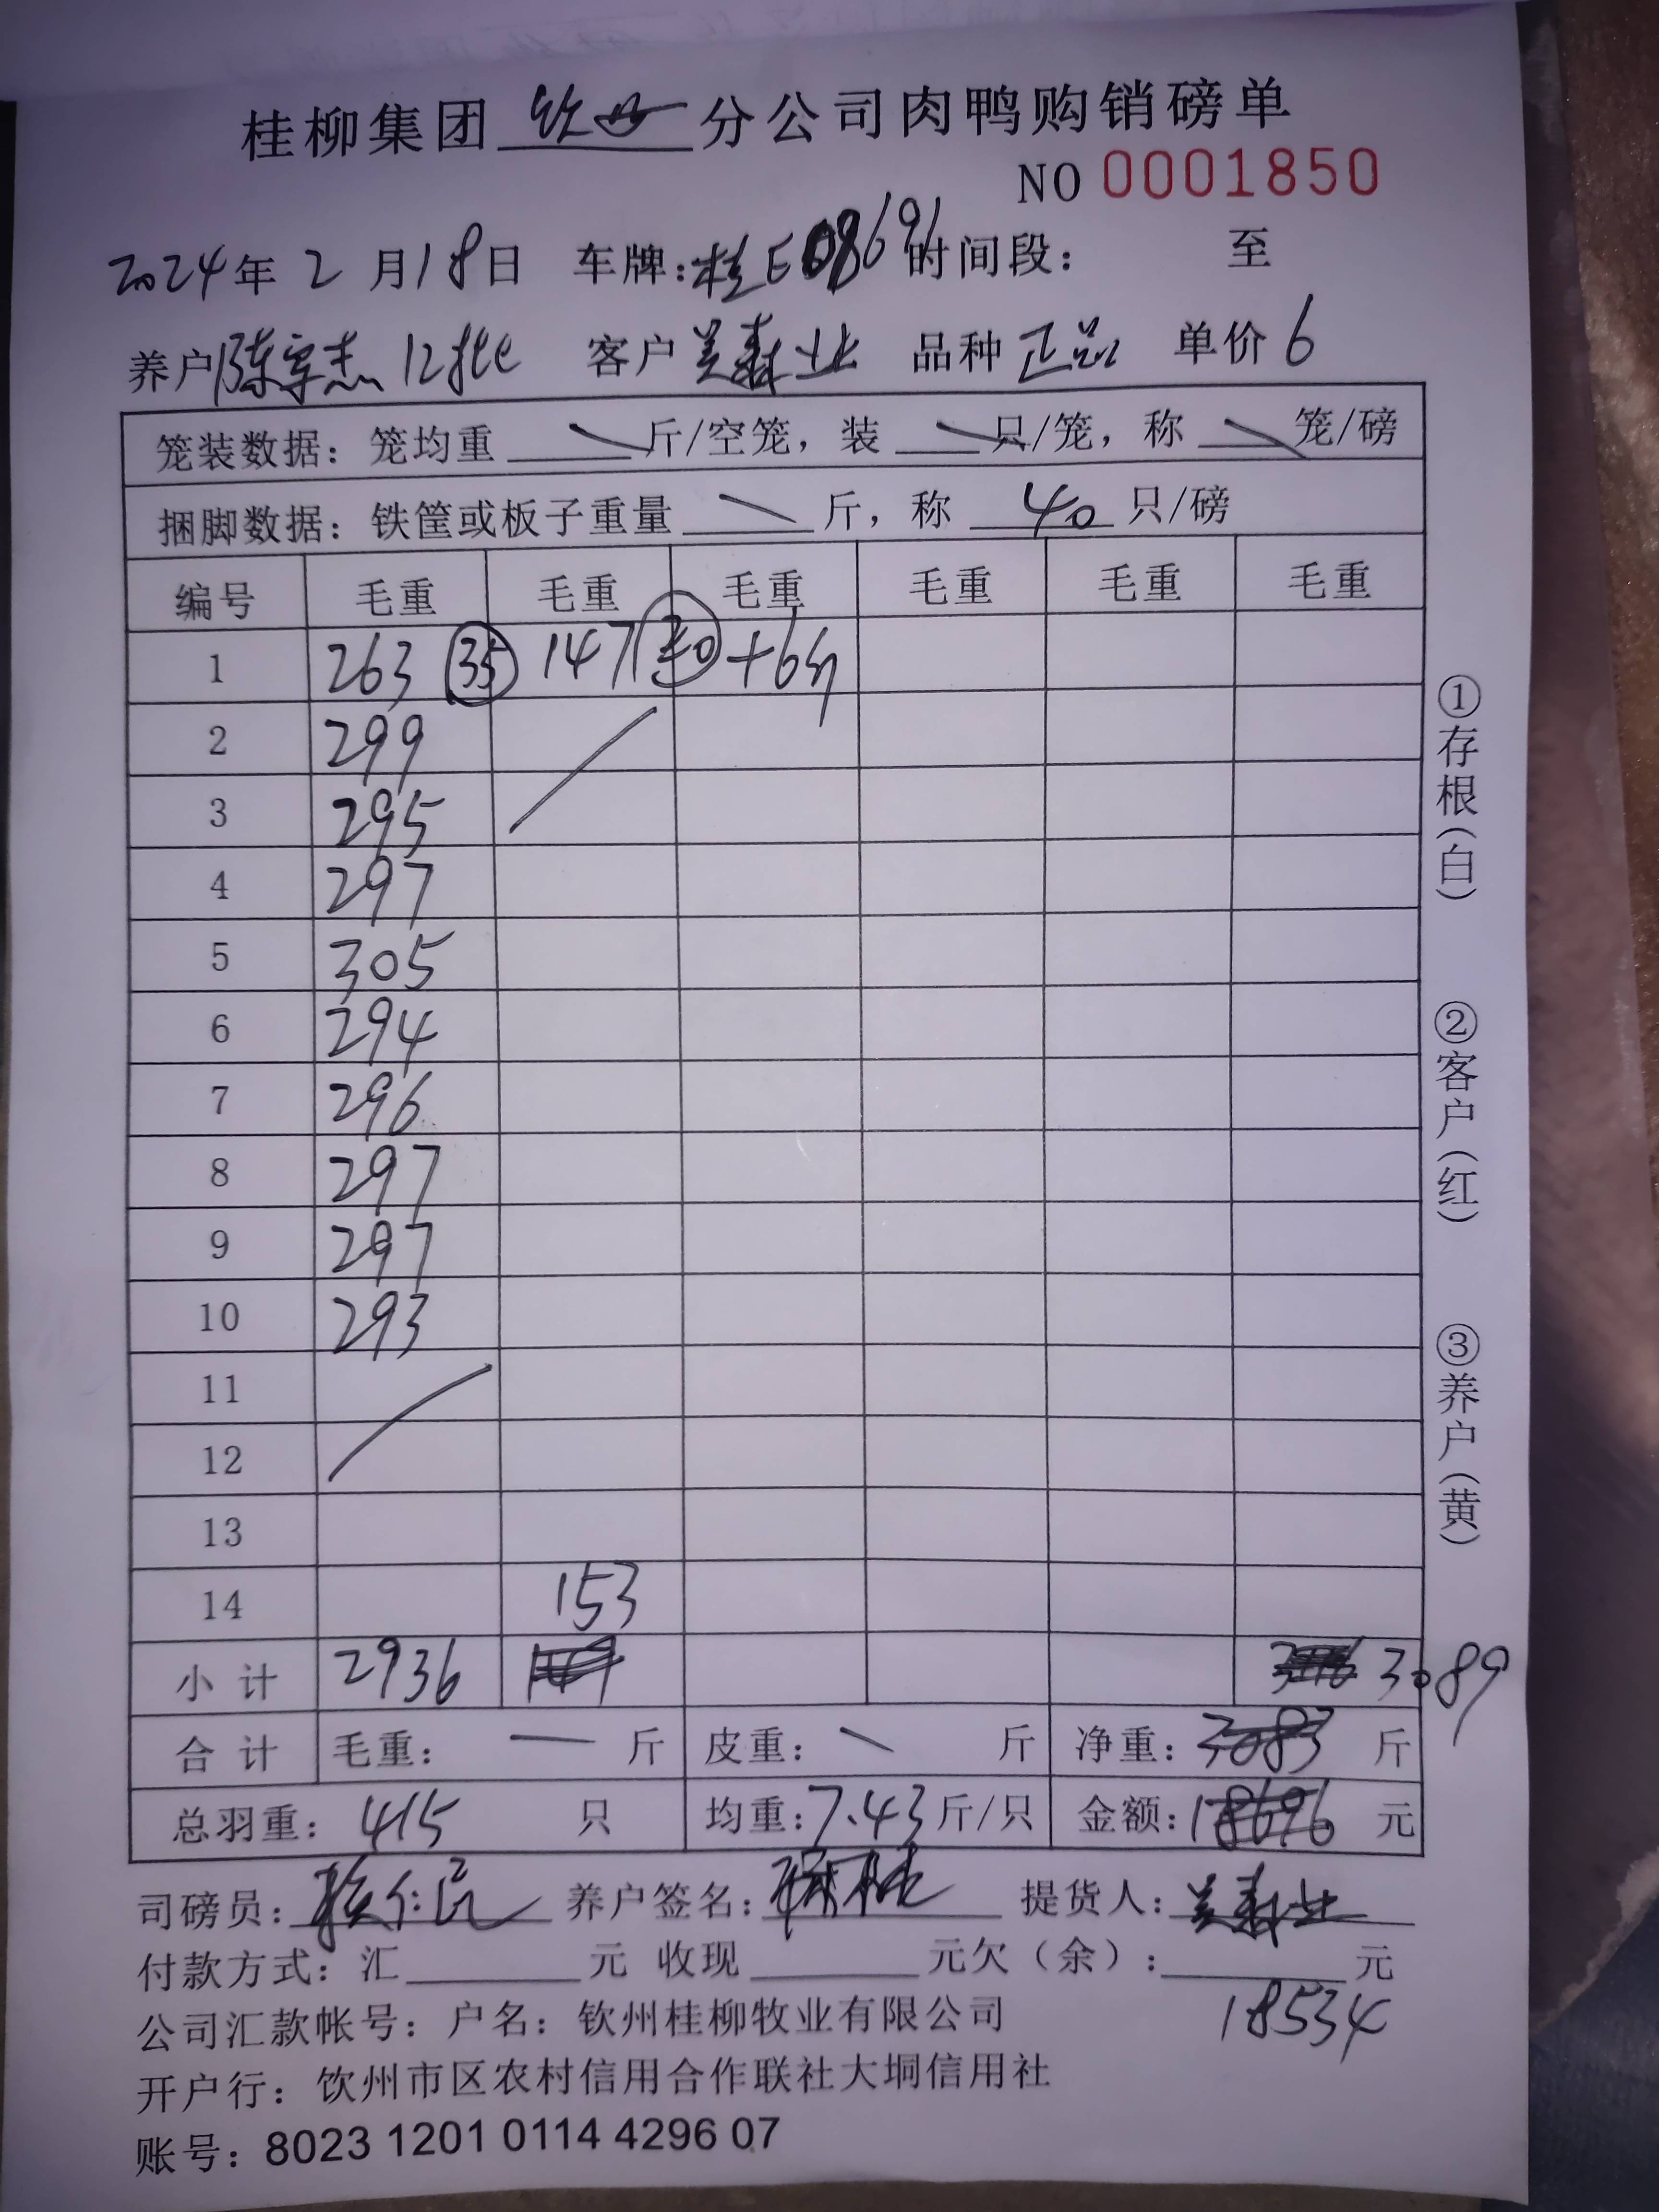 桂柳集团 钦州 分公司肉鸭购销磅单
NO 0001850
2024年 2 月18日 车牌:桂E08691 时间段: 至
养户 陈 12批 客户 业 品种 正品 单价 6
笼装数据: 笼均重 斤/空笼, 装 只/笼, 称 笼/磅
捆脚数据: 铁筐或板子重量 斤, 称 40 只/磅
编号 毛重 毛重 毛重 毛重 毛重 毛重
1 263 35 147 +6斤
2 299
3 295
4 297
5 305
6 294
7 296
8 297
9 297
10 293
11
12
13
14 153
小计 2936 3089
合计 毛重: 斤 皮重: 斤 净重: 3083 斤
总羽重: 415 只 均重: 7.43 斤/只 金额: 18696 元
司磅员: 养户签名: 提货人:
付款方式: 汇 元 收现 元欠(余): 元
18534
公司汇款帐号: 户名: 钦州桂柳牧业有限公司
开户行: 钦州市区农村信用合作联社大垌信用社
账号: 8023 1201 0114 4296 07
①存根(白)
②客户(红)
③养户(黄)